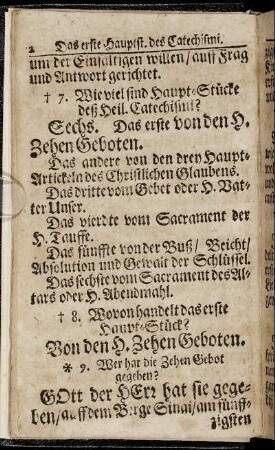 2 Das erste Hauptst. des Catechismi.
um der Einfältigen willen/ auff Frag
und Antwort gerichtet.
† 7. Wie viel sind Haupt-Stücke
deß Heil. Catechismi?
Sechs. Das erste von den H.
Zehen Geboten.
Das andere von den drey Haupt-
Artickeln des Christlichen Glaubens.
Das dritte vom Gebet oder H. Vat-
ter Unser.
Das vierdte vom Sacrament der
H. Tauffe.
Das fünffte von der Buß/ Beicht/
Absolution und Gewalt der Schlüssel.
Das sechste vom Sacrament des Al-
tars oder H. Abendmahl.
† 8. Wovon handelt das erste
Haupt-Stück?
Von den H. Zehen Geboten.
* 9. Wer hat die Zehen Gebot
gegeben?
GOtt der HErr hat sie gege-
ben/ auff dem Berge Sinai/ am fünff-
zigsten